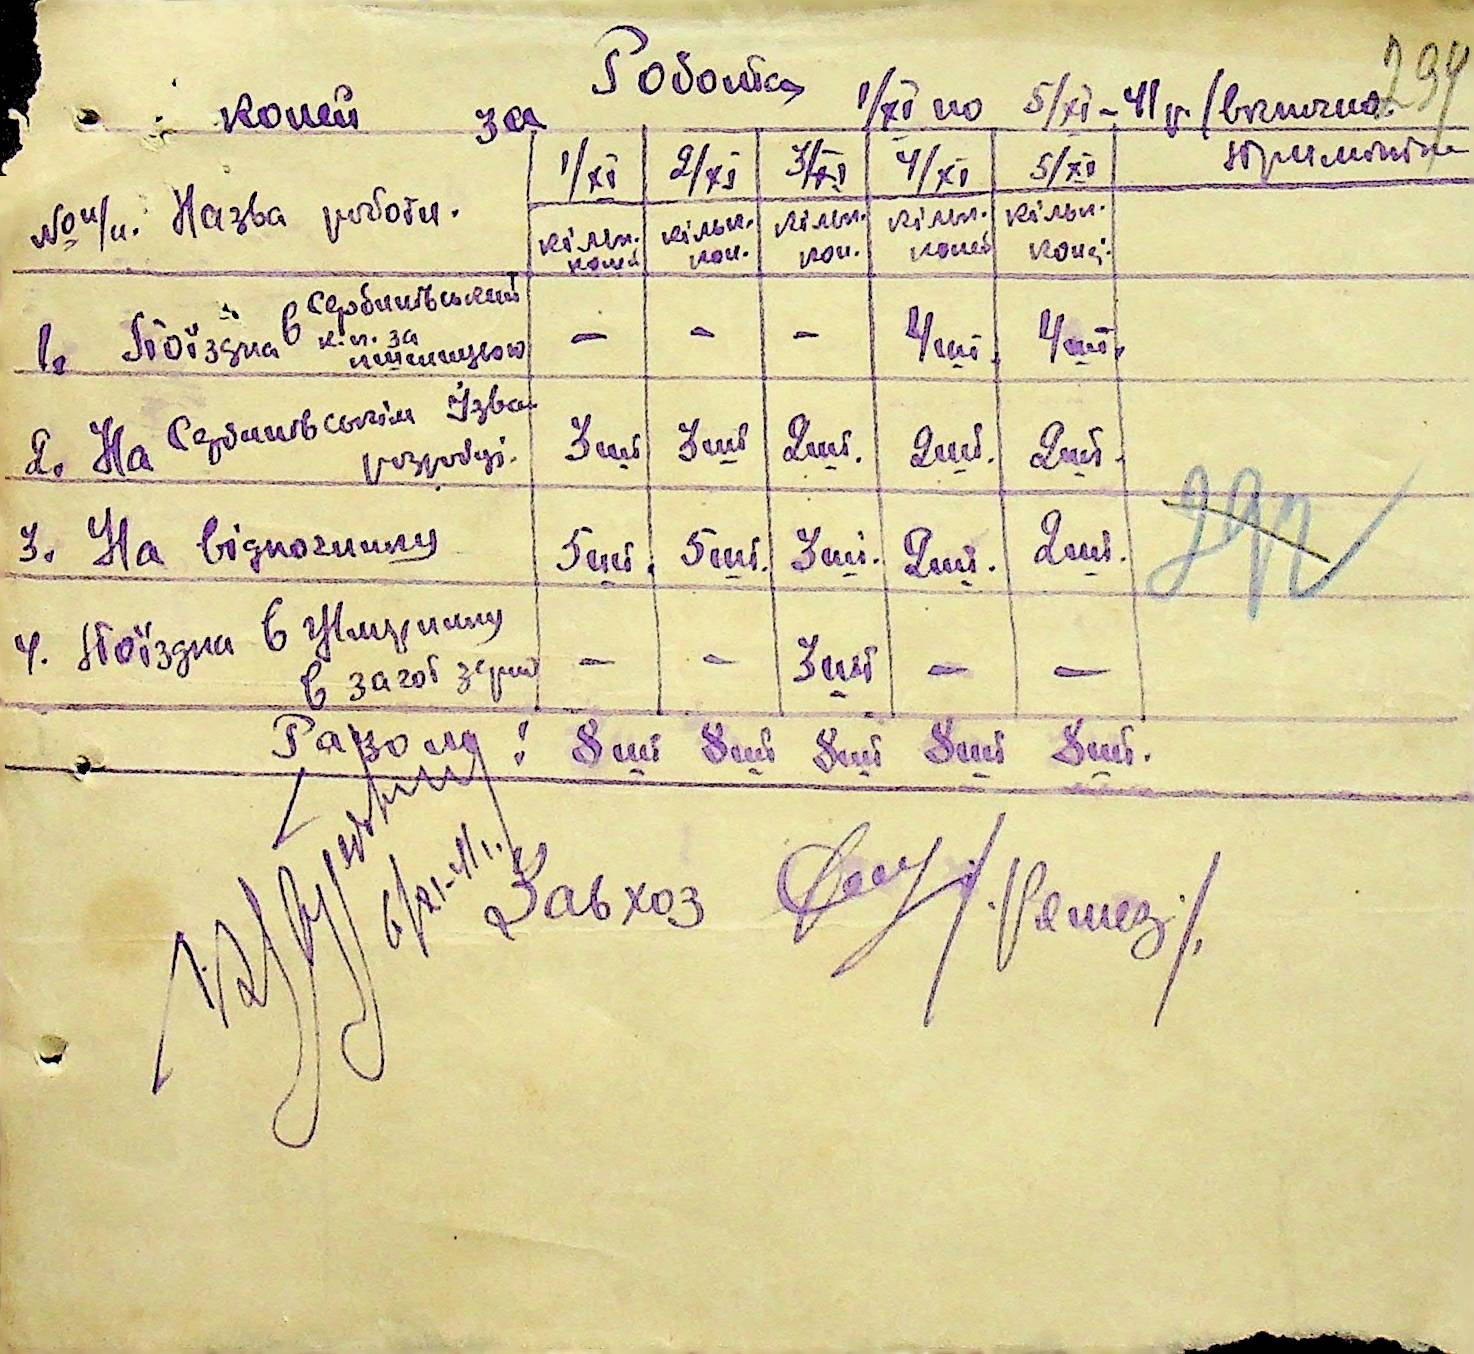 Робота
коней за 1/XI по 5/XI-41 р. /включно.
294
№ п/п. Назва роботи. 1/XI 2/XI 3/XI 4/XI 5/XI
кільк. коней кільк. кон. кільк. кон. кільк. коней кільк. конеі.
1. Поїздка в Сербинівський к.п. за пшеницею – – – 4 шт. 4 шт.
2. На Сербинівськім розробці. 3 шт 3 шт 2 шт. 2 шт. 2 шт.
3. На відпочинку 5 шт. 5 шт. 3 шт. 2 шт. 2 шт.
4. Поїздка в Жмеринку в загот зерно – – 3 шт – –
Разом: 8 шт 8 шт 8 шт 8 шт 8 шт.
6/XI-41.
Завхоз /Ремез/.